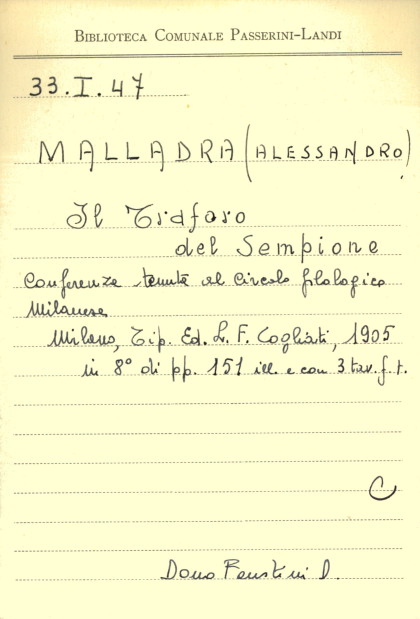 BIBLIOTECA COMUNALE PASSERINI-LANDI
33.I.47
MALLADRA (ALESSANDRO)
Il Traforo
del Sempione
Conferenze tenute al Circolo filologico
Milanese
Milano, Tip. Ed. L. F. Cogliati, 1905
in 8° di pp. 151 ill. e con 3 tav. f. t.
C
Dono Faustini D.